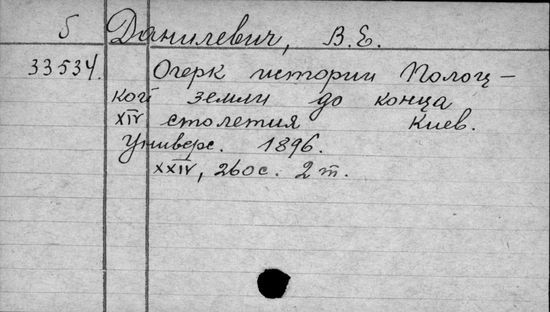 5 Данилевич, В.Е.
33534. Очерк истории Полоц-
кой земли до конца
XIV столетия Киев.
Универс. 1896.
XXIV, 260с. 2 т.